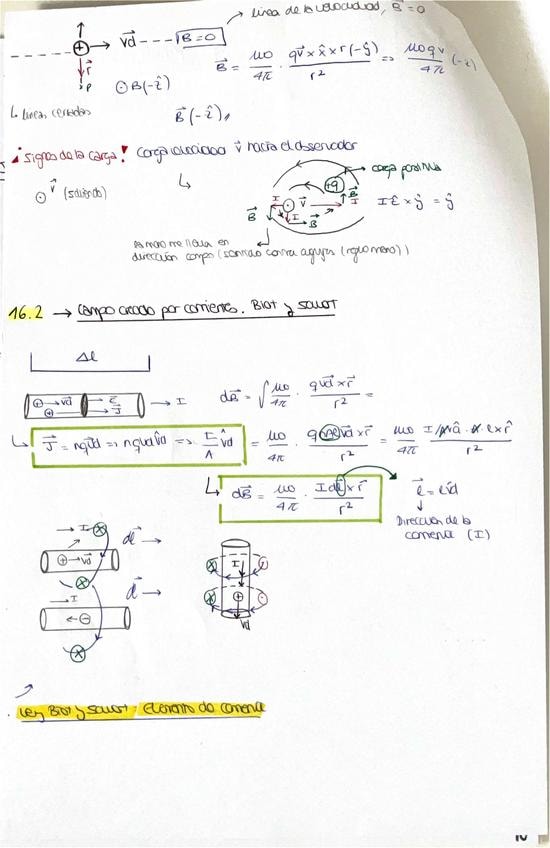 línea de la velocidad, B = 0
⊕ → v⃗d ---- B=0
r⃗
P
⊙ B(-ẑ)
B⃗ = μ0/4π · qv⃗ x x̂ x r(-ŷ)/r² => μ0qv/4π (-z)
↳ líneas cerradas
B⃗(-ẑ)
¡Signos de la carga! Carga velocidad v⃗ hacia el observador
⊙ v⃗ (saliendo)
carga positiva
+q
I B⃗
I ⊙ v⃗ I
B⃗ I B⃗
x ŷ = ŷ
dirección campo (sentido contra agujas (reglo mano))
16.2 → Campo creado por corrientes. Biot y Savart
Δl
⊕→v⃗d E⃗
⊕ → J⃗ → I
dB⃗ = ∫ μ0/4π · qv⃗d x r⃗/r² =
↳ J⃗ = nqv⃗d => nqvdv̂d => I/A v̂d
= μ0/4π ·
↳ dB⃗ = μ0/4π · Idl⃗ x r⃗/r²
l⃗ = lv̂d
Dirección de la
corriente (I)
→ I ⊗ dl⃗ →
⊕→v⃗d
⊗
→ I dl⃗ →
←⊖
⊗
I
⊗ ⊙
⊗ ⊕ ⊙
v⃗d
Ley Biot y Savart - Elemento de corriente
10